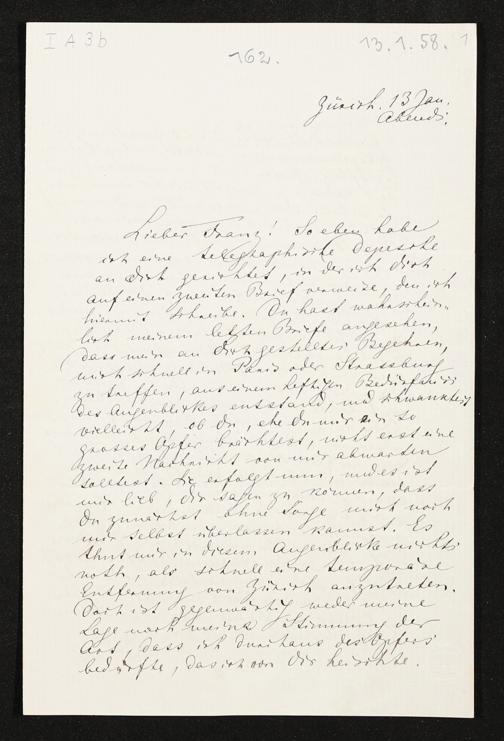 I A 3b
162.
13.1.58.
1
Zürich. 13 Jan.
Abends.
Lieber Franz! So eben habe
ich eine telegraphische Depesche
an dich gerichtet, in der ich dich
auf einen zweiten Brief verweise, den ich
hiermit schreibe. Du hast wahrschein-
lich meinem letzten Briefe angesehen,
dass mein an dich gestelltes Begehren,
mich schnell in Paris oder Strassburg
zu treffen, aus einem heftigen Bedürfnisse
des Augenblickes entstand, und schwanktest
vielleicht, ob du, ehe du mir ein so
grosses Opfer brächtest, nicht erst eine
zweite Nachricht von mir abwarten
solltest. Sie erfolgt nun, und es ist
mir lieb, dir sagen zu können, dass
Du zunächst ohne Sorge mich noch
mir selbst überlassen kannst. Es
thut mir in diesem Augenblicke nichts
noth, als schnell eine temporäre
Entfernung von Zürich anzutreten.
Doch ist gegenwärtig weder meine
Lage noch meine Stimmung der
Art, dass ich durchaus des Opfers
bedürfte, das ich von dir heischte.